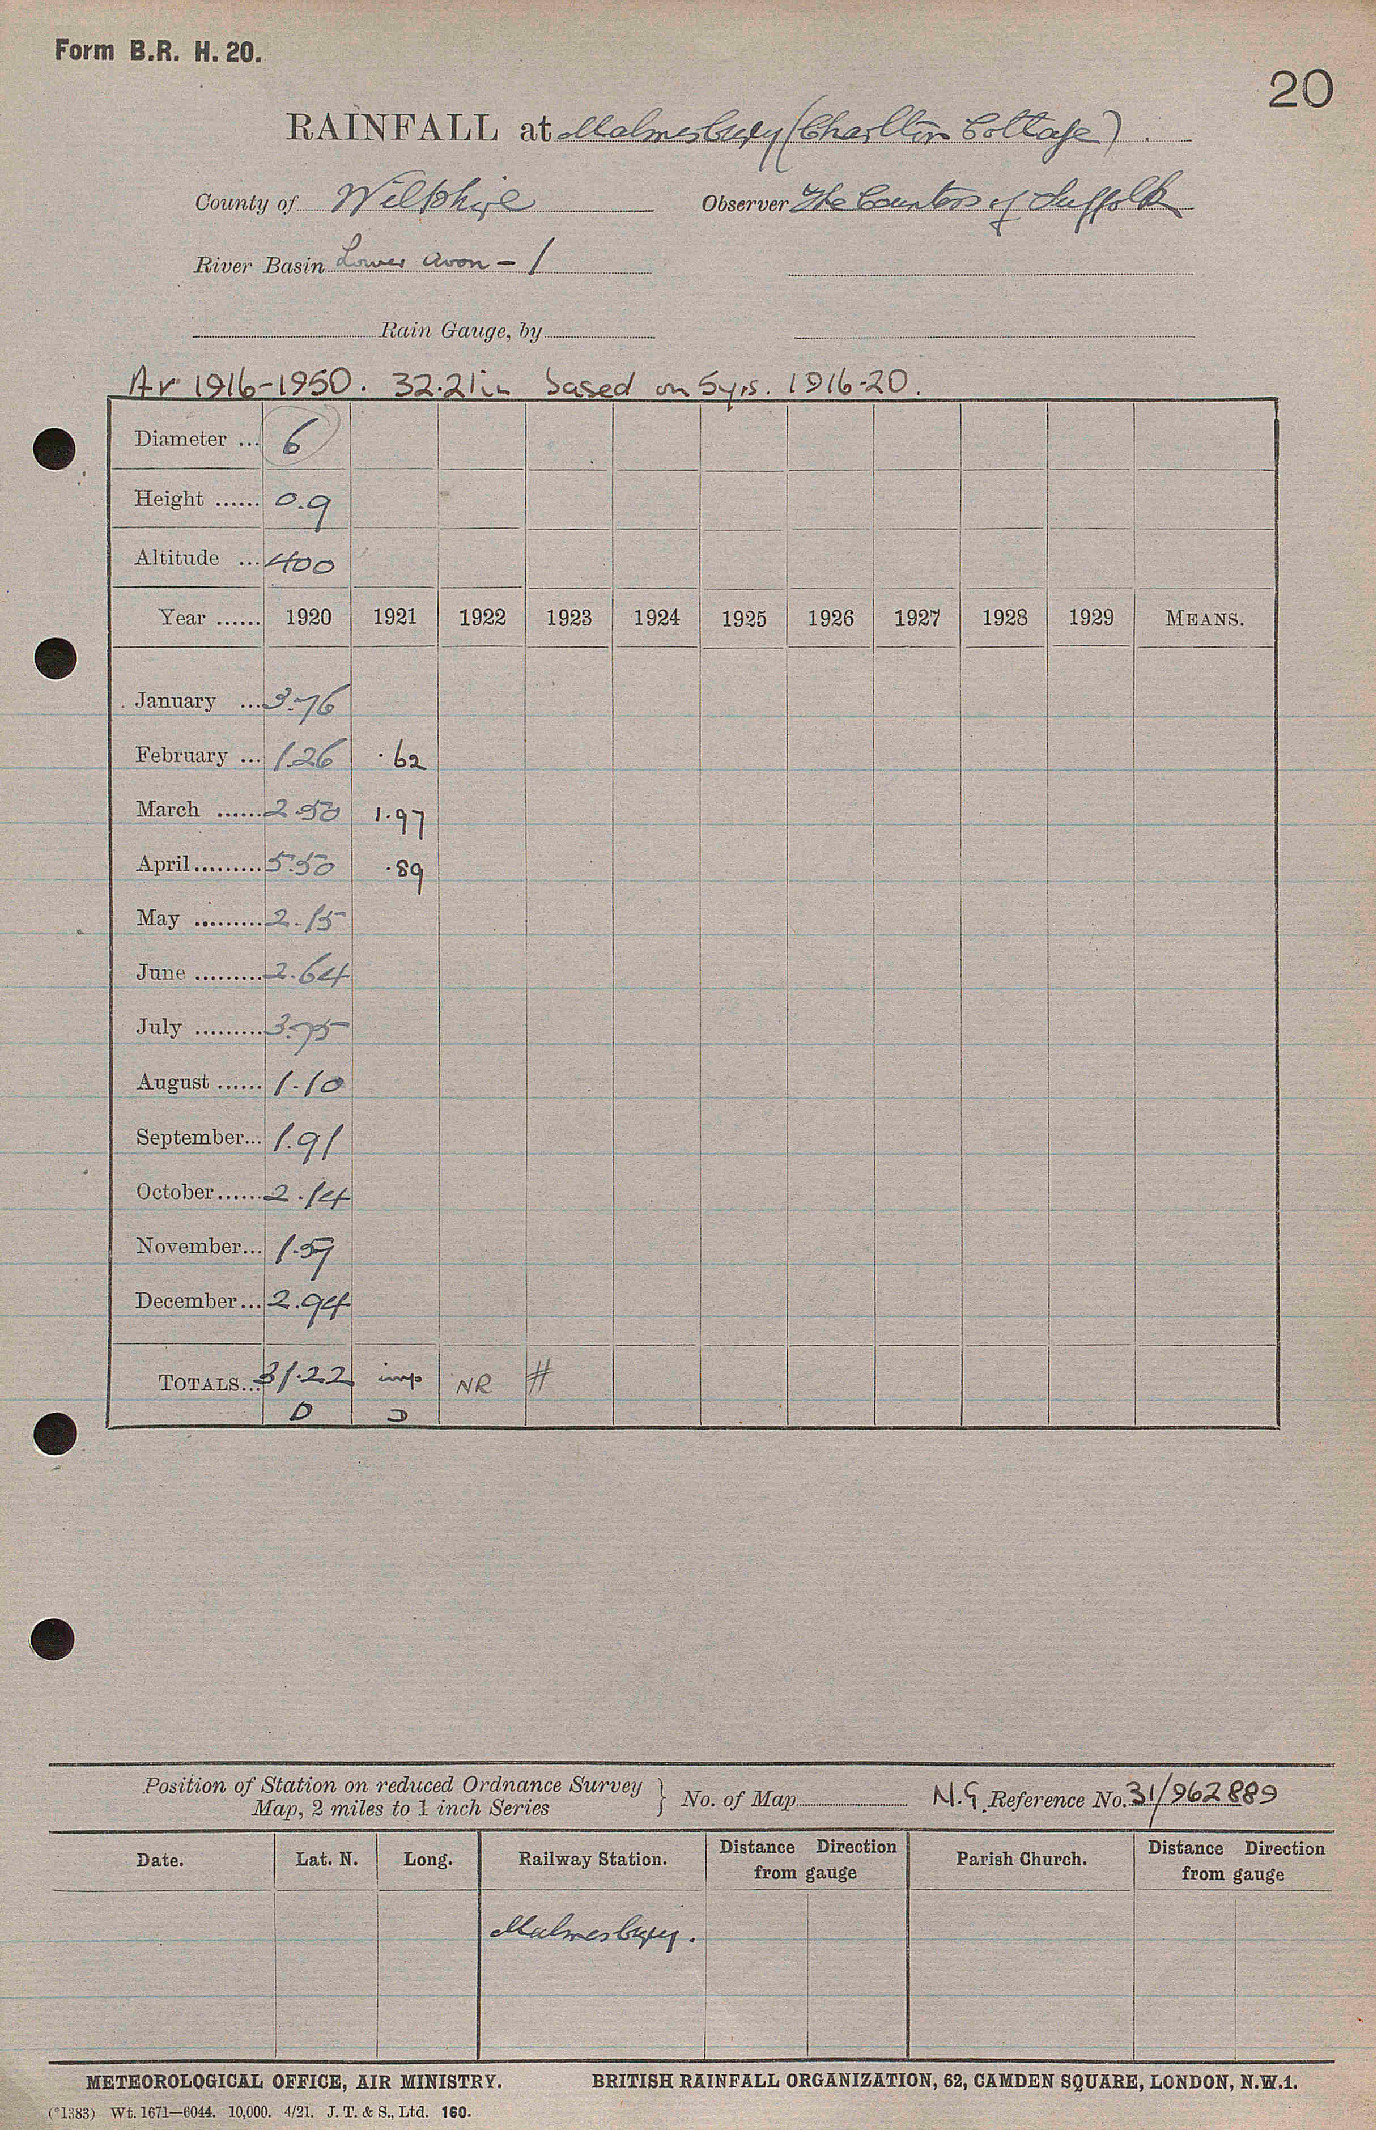 Form B.R. H. 20.
20
RAINFALL at Malmesbury (Charlton Cottage).
County of Wiltshire Observer The Countess of Suffolk
River Basin Lower Avon - 1
Rain Gauge, by
Av 1916-1950. 32.21in based on 5yrs. 1916-20.
Diameter ... 6
Height ...... 0.9
Altitude ... 400
Year ...... 1920 1921 1922 1923 1924 1925 1926 1927 1928 1929 MEANS.
January ... 3.76
February ... 1.26 .62
March ...... 2.50 1.97
April......... 5.50 .89
May ......... 2.15
June ......... 2.64
July ......... 3.75
August ...... 1.10
September... 1.91
October...... 2.14
November... 1.57
December... 2.94
TOTALS... 31.22 imp NR #
D D
Position of Station on reduced Ordnance Survey } No. of Map N.G. Reference No. 31/962889
Map, 2 miles to 1 inch Series
Date. Lat. N. Long. Railway Station. Distance Direction from gauge Parish Church. Distance Direction from gauge
Malmesbury.
METEOROLOGICAL OFFICE, AIR MINISTRY. BRITISH RAINFALL ORGANIZATION, 62, CAMDEN SQUARE, LONDON, N.W.1.
(*1383) Wt. 1671—6044. 10,000. 4/21. J. T. & S., Ltd. 160.